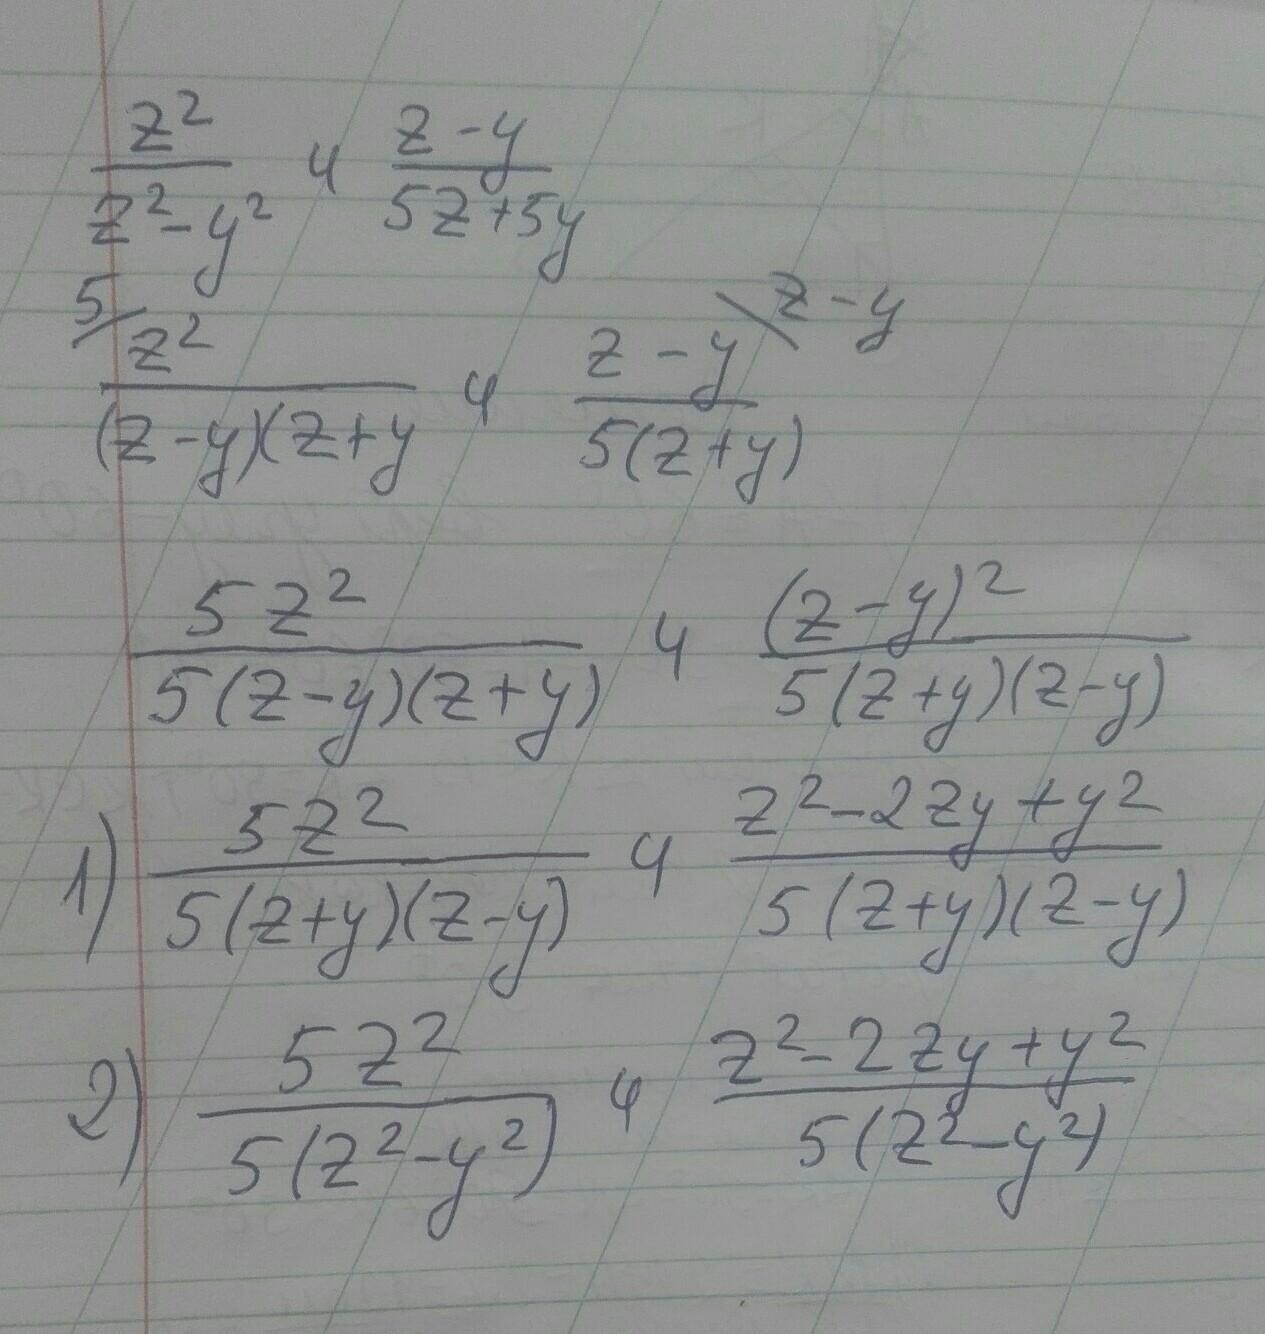 z² / z² - y² и z - y / 5z + 5y
5/ z² / (z - y)(z + y и z - y \ z - y / 5(z + y)
5z² / 5(z - y)(z + y) и (z - y)² / 5(z + y)(z - y)
1) 5z² / 5(z + y)(z - y) и z² - 2zy + y² / 5(z + y)(z - y)
2) 5z² / 5(z² - y²) и z² - 2zy + y² / 5(z² - y²)